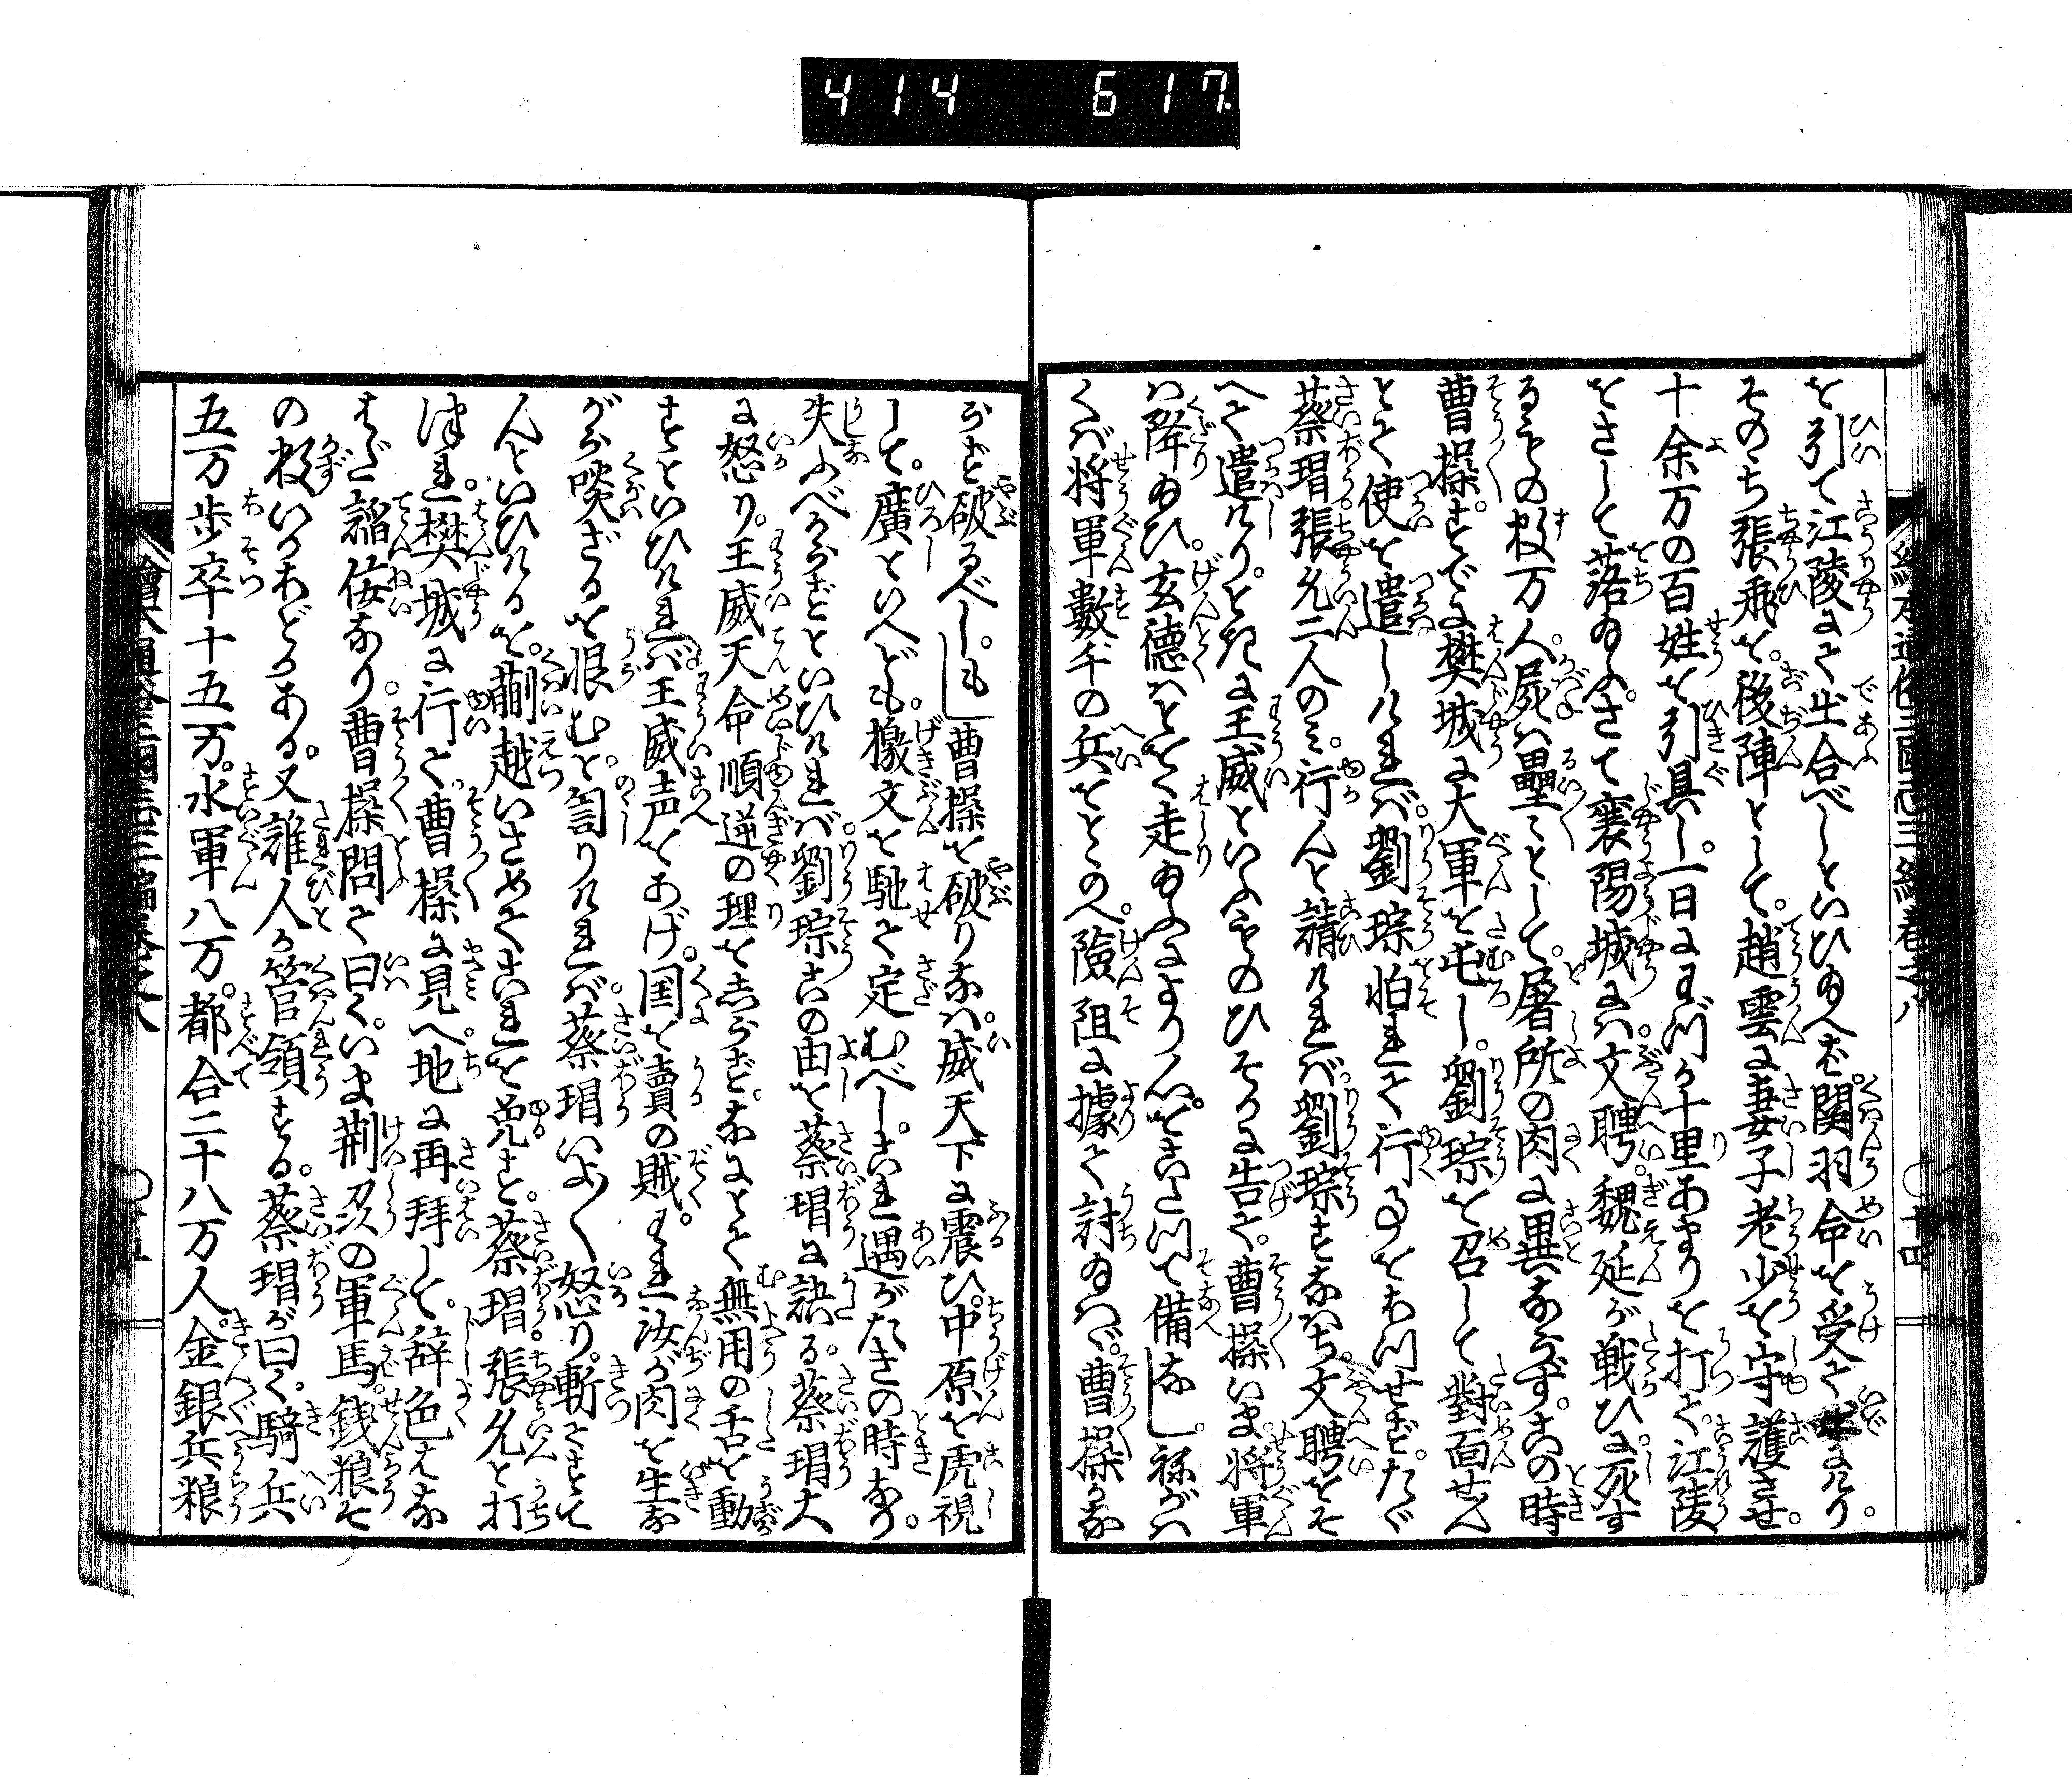 414 617
を引て江陵にて出合べしといひ給へば。関羽命を受て出にけり。
そのゝち張飛を。後陣として。趙雲に妻子老少を守護させ。
十余万の百姓を引具し。一日にわづか十里あまりを打て。江陵
をさして落給ふ。さて襄陽城には。文聘。魏延が戦ひに。死す
るもの数万人。屍は壘々として。屠所の肉に異ならず。この時
曹操。すでに樊城に大軍を屯し。劉琮を召して對面せん
とて使を遣しければ。劉琮怕れて行事をもつせず。たゞ
蔡瑁。張允二人のミ。行んと請ければ劉琮すなはち。文聘をそ
へて遣しけり。ときに王威といふものひそかに告て。曹操いま将軍
ハ降給ひ。玄徳ハとをく走給ふにより。心をこたつて備なし。秘が
くバ将軍數千の兵をとゝのへ。險阻に據て討給はゞ。曹操かな
らず破るべし。もし曹操を破りなバ。威天下に震ひ。中原を虎視
して。廣といへども。檄文を馳て定むべし。これ遇がたきの時なり。
失ふべからずといひければ。劉琮この由を蔡瑁に語る。蔡瑁大
に怒り。王威天命順逆の理をしらず。なにとて無用の舌を動
すといひければ王威声をあげ。国を賣の賊。われ汝が肉を生な
がら啖ざるを恨むと罰りければ。蔡瑁いよ〱怒り。斬てすて
んといひけるを。蒯越いさめてこれを免す。蔡瑁。張允と打
つれ。樊城に行て。曹操に見へ。地に再拝して。辞色はな
はだ諂佞なり。曹操問て曰く。いま荆州の軍馬。銭粮そ
の数いかほどかある。又誰人か管領する。蔡瑁が曰く。騎兵
五万歩卒十五万。水軍八万。都合二十八万人。金銀兵粮